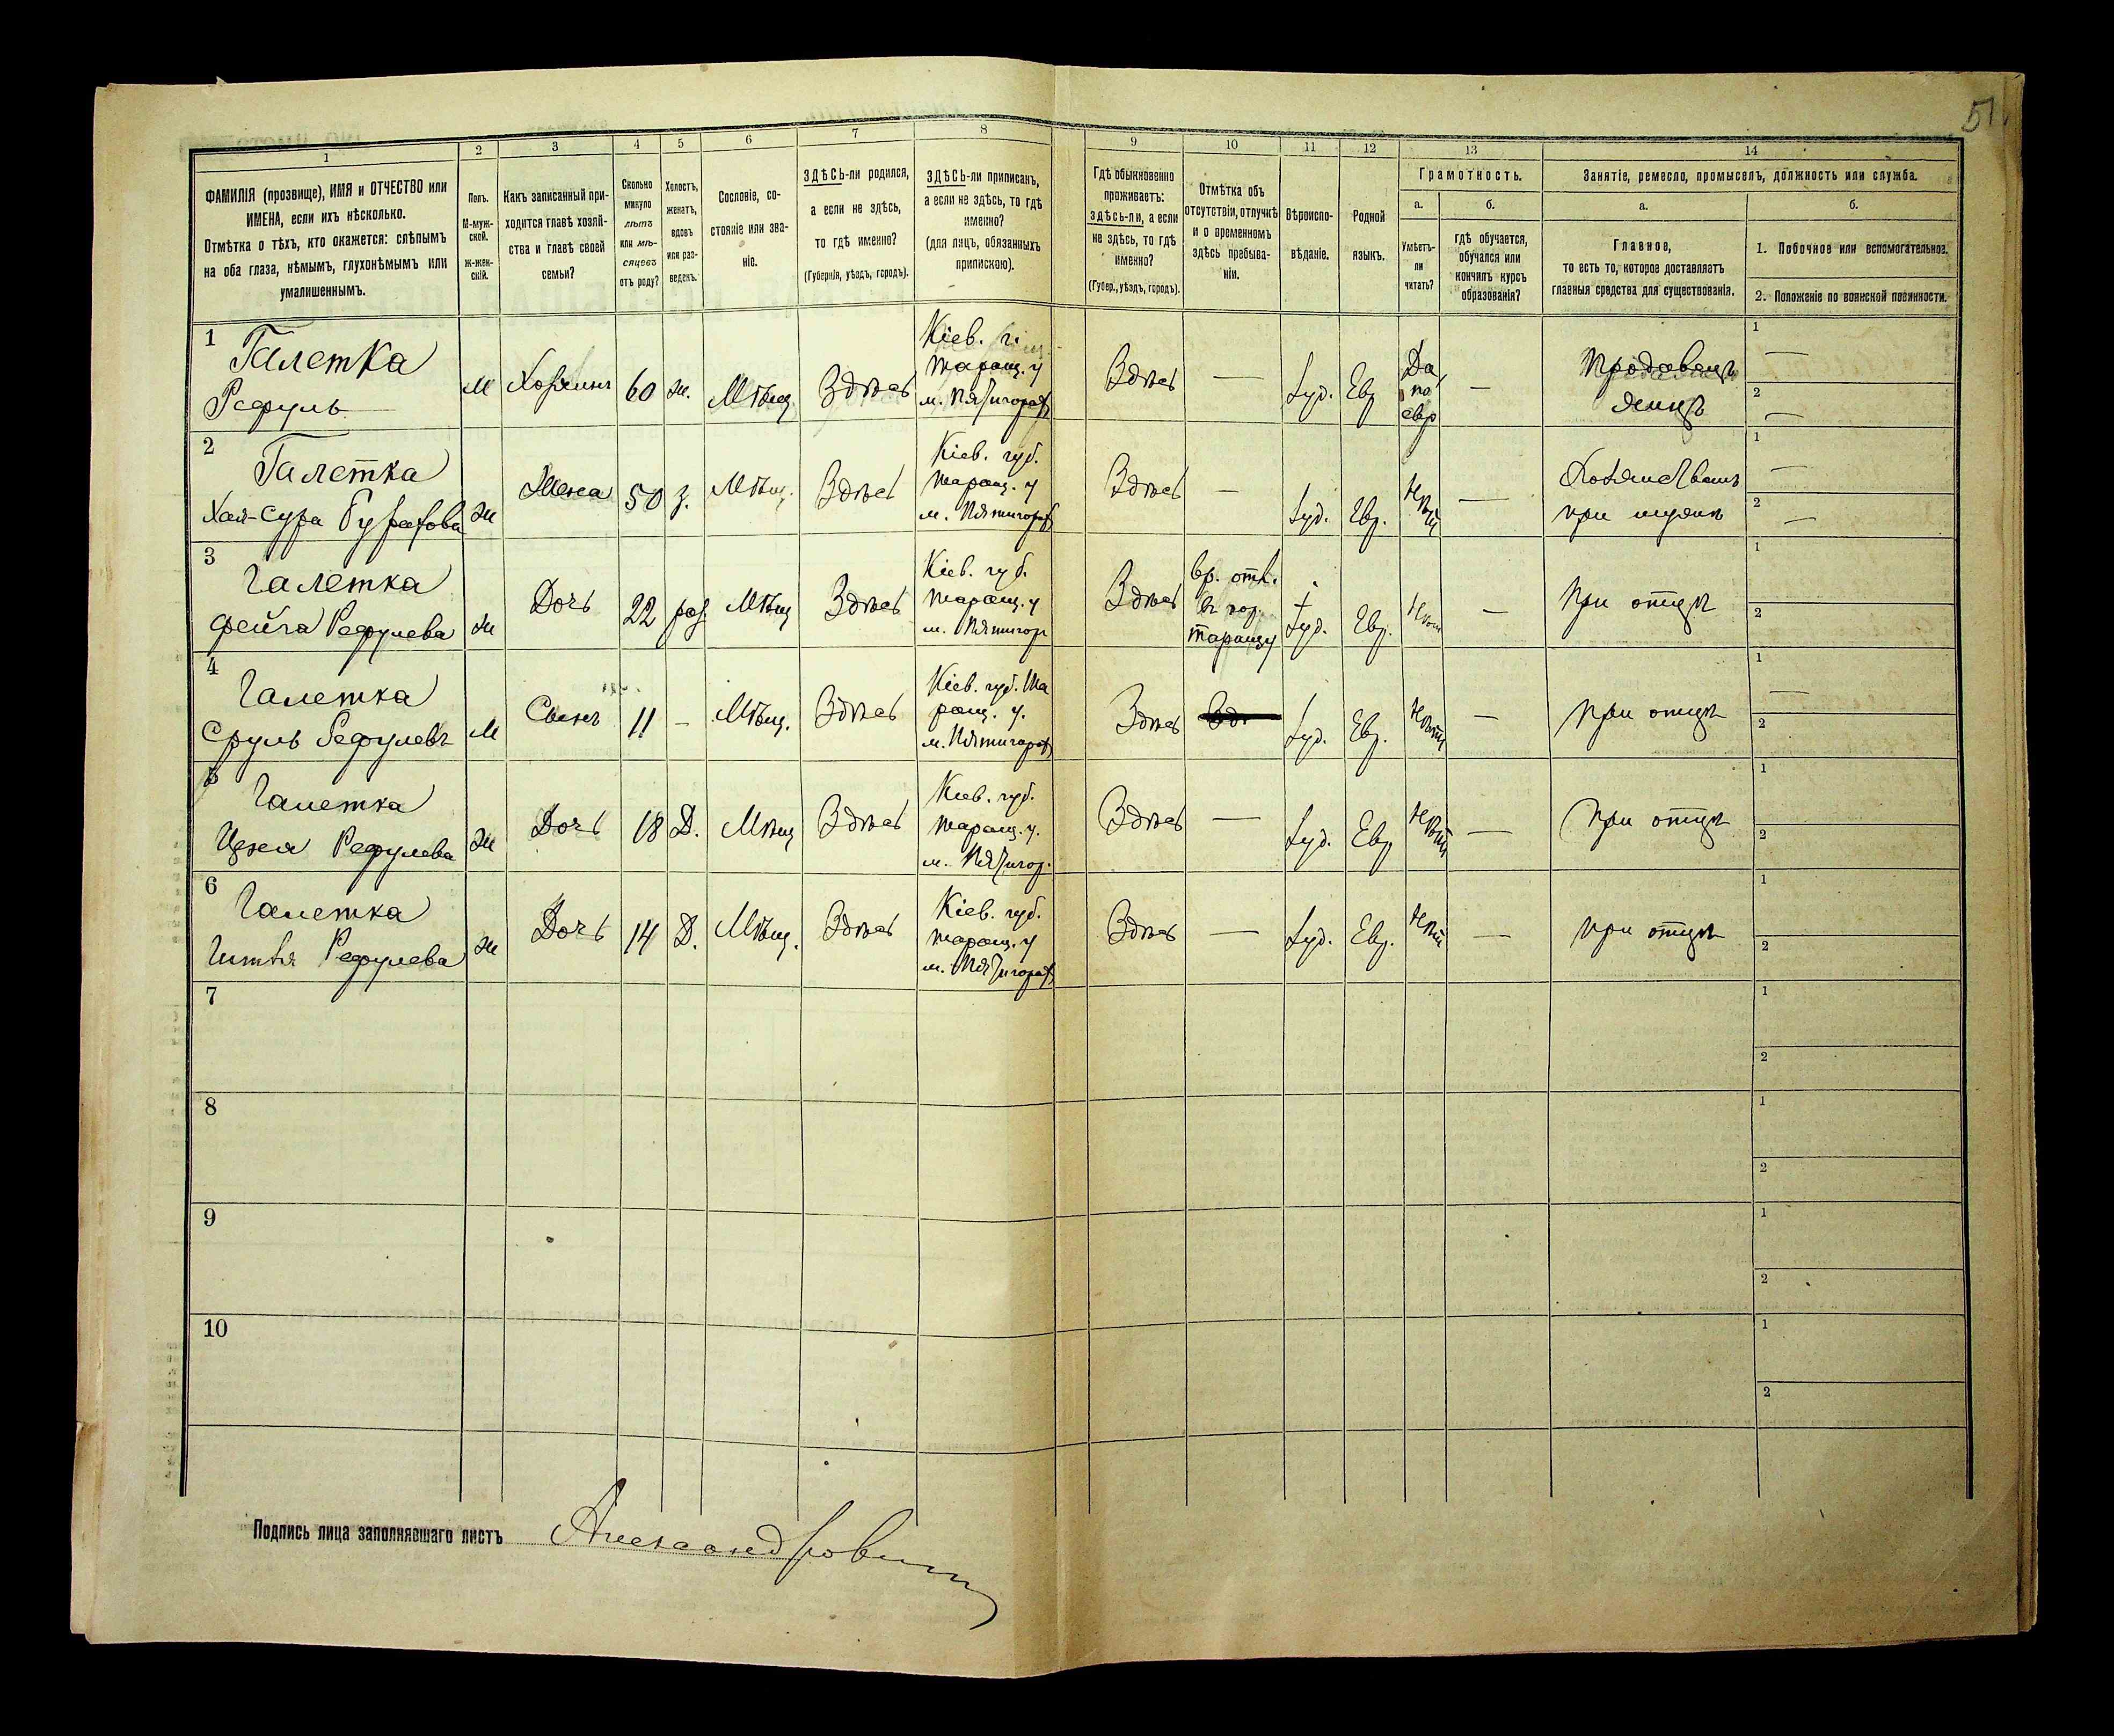 51
1 2 3 4 5 6 7 8 9 10 11 12 13 14
ФАМИЛІЯ (прозвище), ИМЯ и ОТЧЕСТВО или
ИМЕНА, если ихъ нѣсколько.
Отмѣтка о тѣхъ, кто окажется: слѣпымъ
на оба глаза, нѣмымъ, глухонѣмымъ или
умалишеннымъ.
Полъ.
М-муж-
ской.
ж-жен-
скій.
Какъ записанный при-
ходится главѣ хозяй-
ства и главѣ своей
семьи?
Сколько
минуло
лѣтъ
или мѣ-
сяцевъ
отъ роду?
Холостъ,
женатъ,
вдовъ
или раз-
веденъ.
Сословіе, со-
стояніе или зва-
ніе.
ЗДѢСЬ-ли родился,
а если не здѣсь,
то гдѣ именно?
(Губернія, уѣздъ, городъ).
ЗДѢСЬ-ли приписанъ,
а если не здѣсь, то гдѣ
именно?
(для лицъ, обязанныхъ
припискою).
Гдѣ обыкновенно
проживаетъ:
здѣсь-ли, а если
не здѣсь, то гдѣ
именно?
(Губер., уѣздъ, городъ).
Отмѣтка объ
отсутствіи, отлучкѣ
и о временномъ
здѣсь пребыва-
ніи.
Вѣроиспо-
вѣданіе.
Родной
языкъ.
Грамотность.
а.
Умѣетъ-
ли
читать?
б.
гдѣ обучается,
обучался или
кончилъ курсъ
образованія?
Занятіе, ремесло, промыселъ, должность или служба.
а.
Главное,
то есть то, которое доставляетъ
главныя средства для существованія.
б.
1. Побочное или вспомогательное.
2. Положеніе по воинской повинности.
1
Галетка
Рефуль
М
Хозяинъ
60
ж.
Мѣщ.
Здѣсь
Кіев. г.
Таращ. у
м. Пятигоры
Здѣсь
—
Іуд.
Евр
Да
по
евр
—
Продавецъ
яицъ
1 —
2 —
2
Галетка
Хая-Сура
ж
Жена
50
з.
Мѣщ.
Здѣсь
Кіев. губ.
Таращ. у
м. Пятигоры
Здѣсь
—
Іуд.
Евр.
Нѣтъ
—
при мужѣ
1 —
2 —
3
Галетка
Фейга Рефулева
ж
Дочь
22
раз
Мѣщ
Здѣсь
Кіев. губ.
Таращ. у
м. Пятигор
Здѣсь
вр. отл.
въ гор.
Таращу
Іуд.
Евр.
Нѣтъ
—
При отцѣ
1
2
4
Галетка
Сруль Рефулевъ
М
Сынъ
11
—
Мѣщ.
Здѣсь
Кіев. губ. Та
ращ. у.
м. Пятигоры
Здѣсь
Іуд.
Евр.
Нѣтъ
—
При отцѣ
1 —
2
5
Галетка
Рефулева
ж
Дочь
18
Д.
Мѣщ
Здѣсь
Кіев. губ.
Таращ. у.
м. Пятигор.
Здѣсь
—
Іуд.
Евр
Нѣтъ
—
При отцѣ
1
2
6
Галетка
Гитля Рефулева
ж
Дочь
14
Д.
Мѣщ.
Здѣсь
Кіев. губ.
Таращ. у
м. Пятигоры
Здѣсь
—
Іуд.
Евр.
Нѣтъ
—
При отцѣ
1
2
7
1
2
8
1
2
9
1
2
10
1
2
Подпись лица заполнявшаго листъ